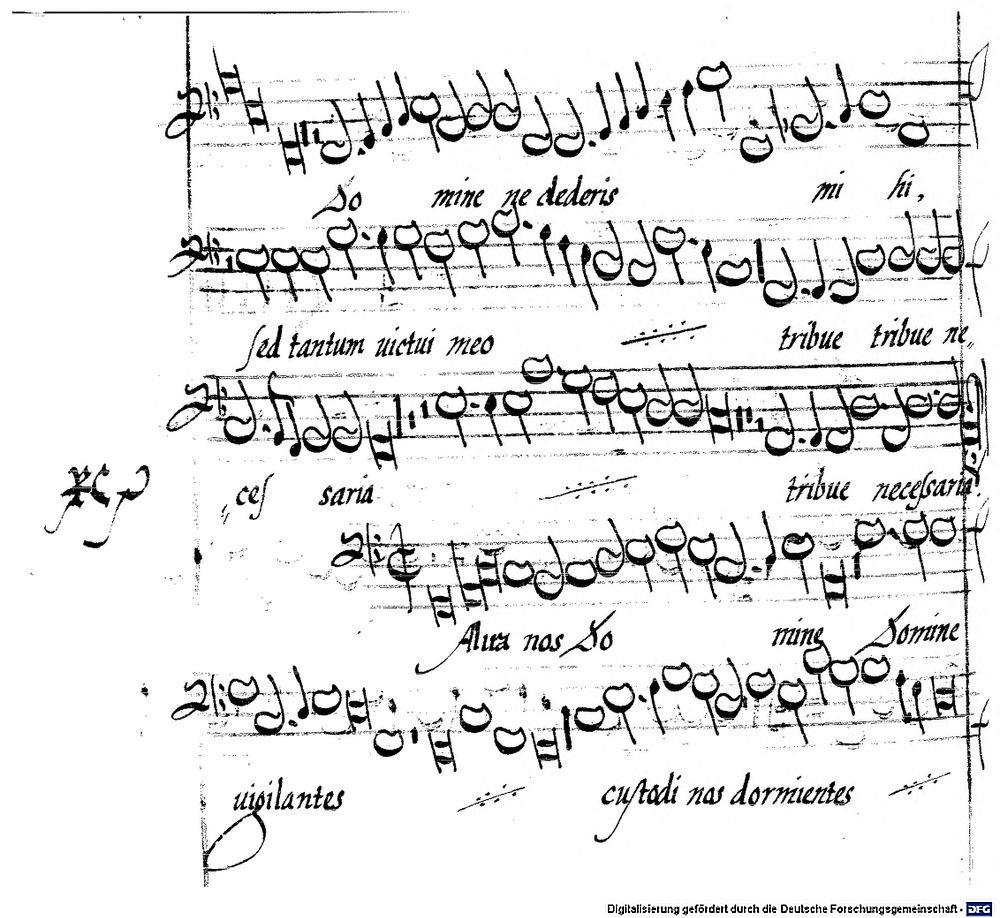 Do mine ne dederis mi hi,
sed tantum uictui meo tribue tribue ne„
„ces saria tribue necessaria.
Salua nos Do mine Domine
uigilantes custodi nos dormientes
Digitalisierung gefördert durch die Deutsche Forschungsgemeinschaft - DFG